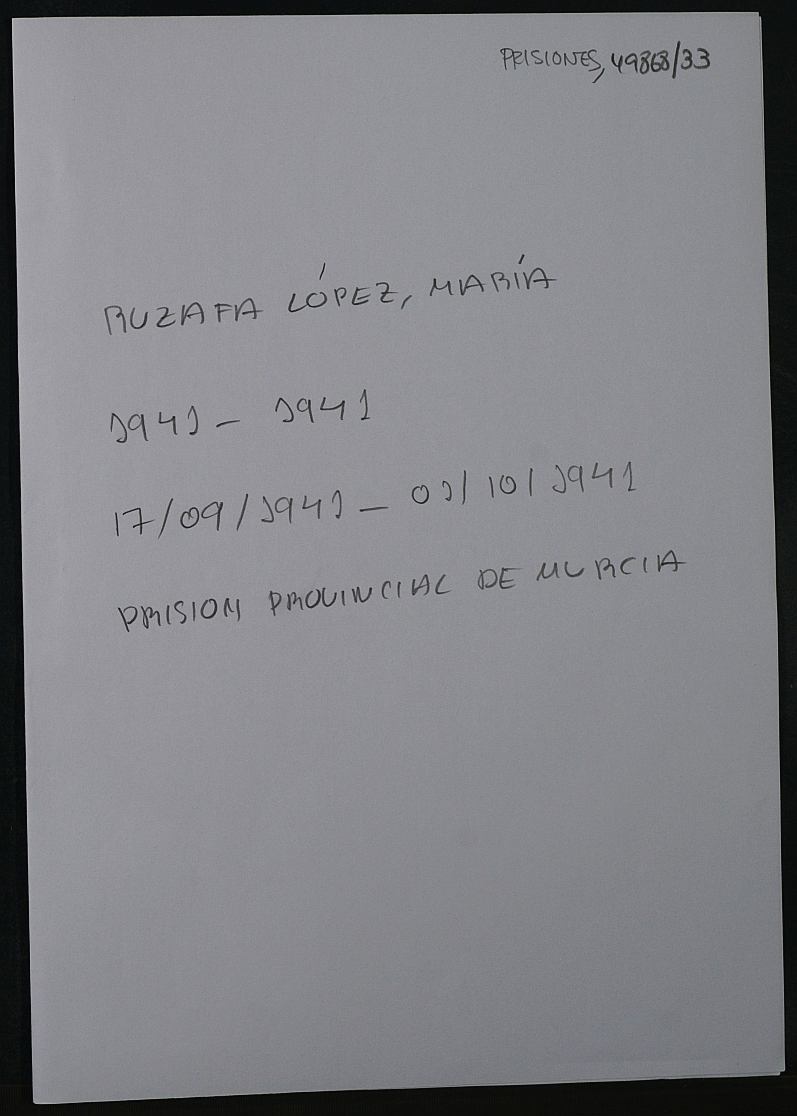 PRISIONES, 49868/33
RUZAFA LÓPEZ, MARÍA
1941 - 1941
17/09/1941 - 01/10/1941
PRISION PROVINCIAL DE MURCIA